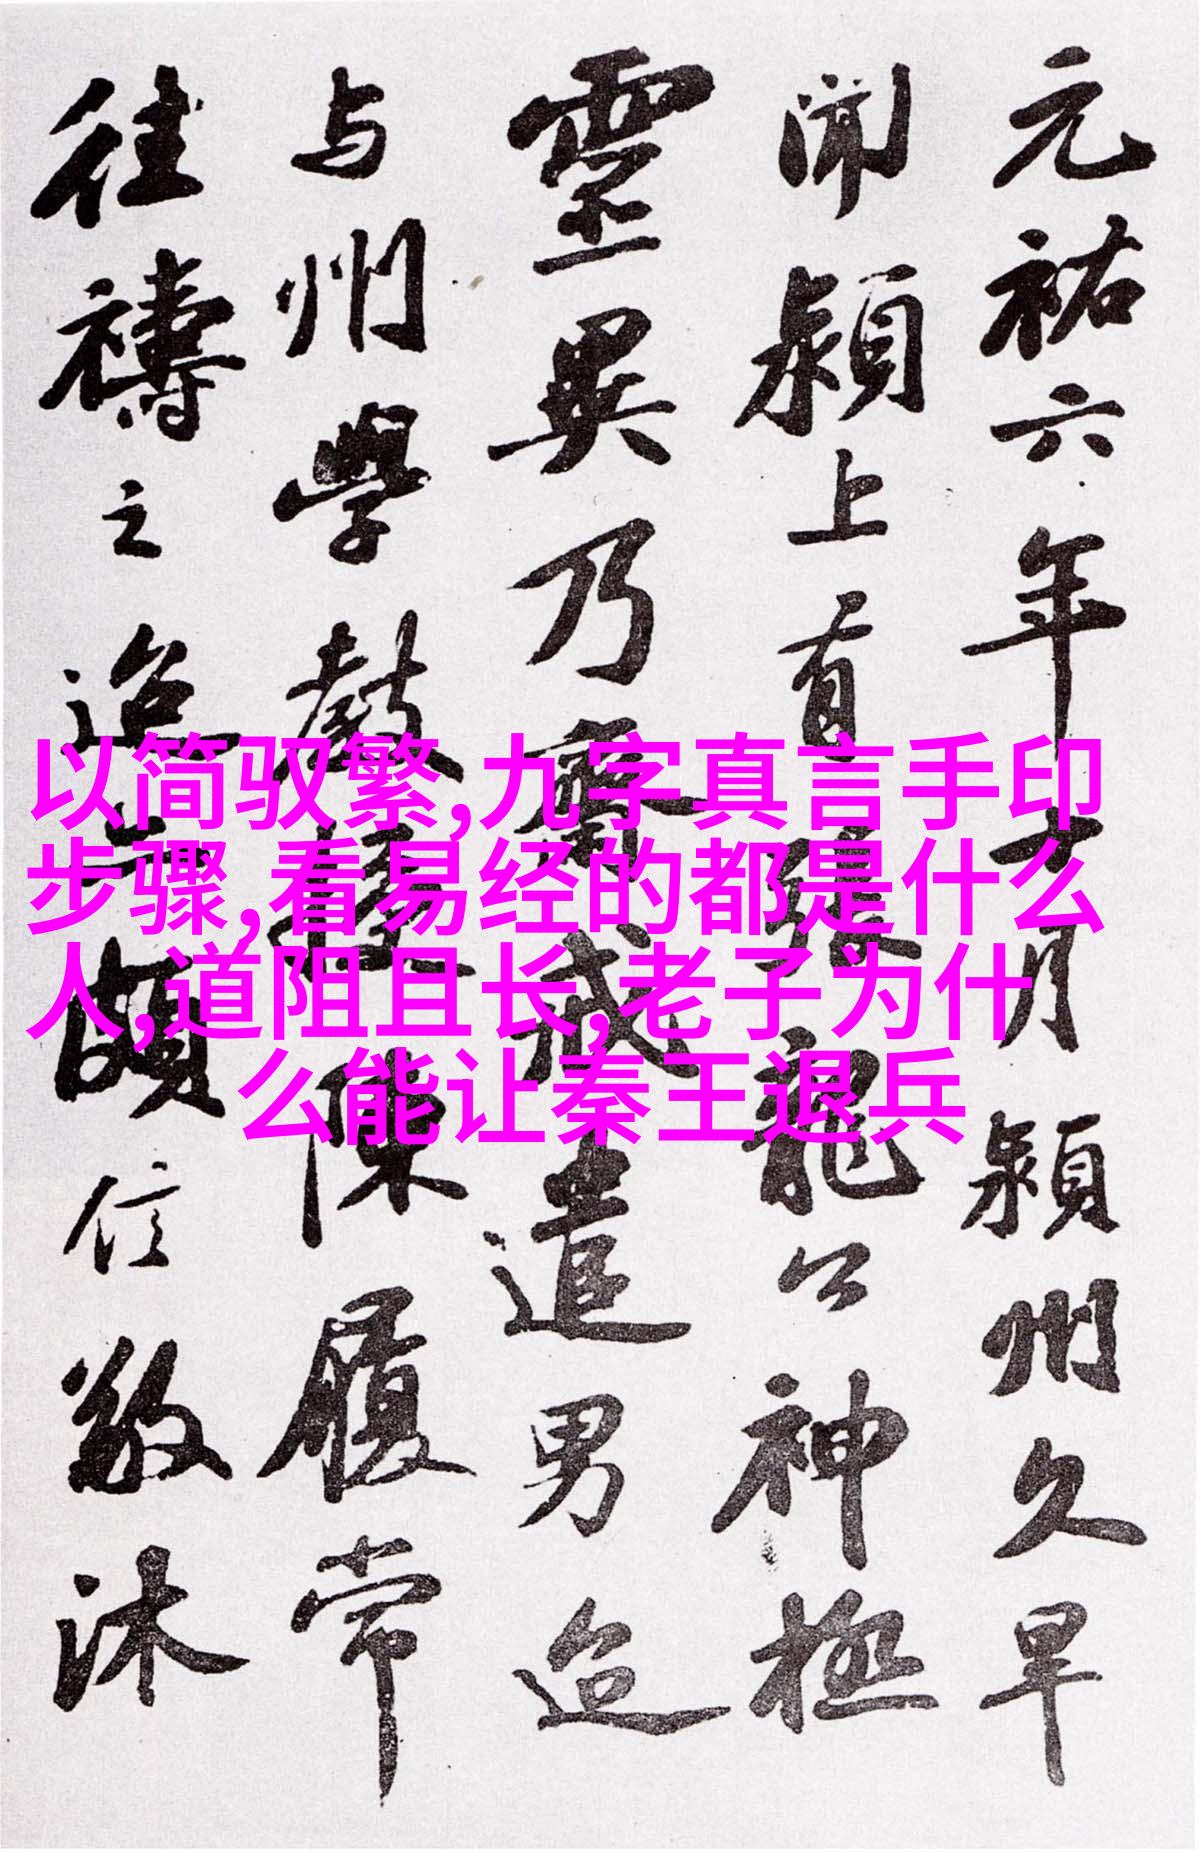 元祐六年十月潁州久旱
聞潁上有張龍公神極
靈異乃齋戒遣男迨
与州學教授陳履常
往禱之迨亦頗信敬沐
以简驭繁,九字真言手印
步骤,看易经的都是什么
人,道阻且长,老子为什
么能让秦王退兵